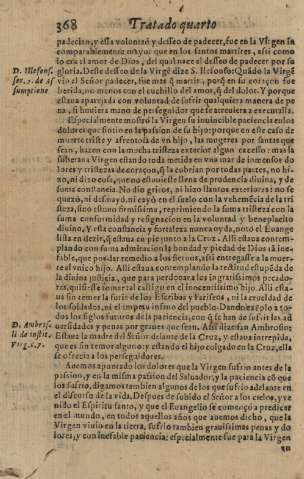 368 Tratado quarto
padecian, y essa voluntad y desseo de padecer, fue en la Virgen in
comparablemente mayor que en los santos martires, assi como
lo era el amor de Dios, del qual nace el desseo de padecer por su
D. Ilefons. gloria. Deste desseo de la Virgẽ dize S. Ilefonso: Quãdo la Virgẽ
ser. 2. de As vio al Señor padecer, fue mas q̃ martir, porq̃ en su coraçon fue
sumptione herida, no menos con el cuchillo del amor, q̃ del dolor. Y porque
estaua aparejada con voluntad de sufrir qualquiera manera de pe
na, si huuiera mano de perseguidor que se atreuiera a executalla.
Especialmente mostrò la Virgen su inuincible paciencia en los
dolores que sintio en la passion de su hijo: porque en este caso de
muerte triste y afrentosa de vn hijo, las mugeres por santas que
sean, hazen con la mucha tristeza exterior algun excesso: mas la
soberana Virgen estando toda metida en vna mar de inmensos do
lores y tristezas de coraçon, q̃ la cubrian por todas partes, no hi-
zo, ni dixo cosa, que no estuuiesse llena de prudencia diuina, y de
suma constancia. No dio gritos, ni hizo llantos exteriores: no se
quexò, ni desmayò, ni cayò en el suelo con la vehemẽcia de la tri
steza, sino estuuo firmissima, reprimiendo la suma tristeza con la
suma conformidad y resignacion en la voluntad y beneplacito
diuino. Y esta constancia y fortaleza nunca oyda, notò el Euange
lista en dezir, q̃ estaua en pie junto a la Cruz. Alli estaua contem-
plando con suma admiraciõ la bondad y piedad de Dios
fable, que por dar remedio a los sieruos, assi entregasse a la muer-
te al vnico hijo. Alli estaua contemplando la rectitud
de la diuina justicia, que para perdonar a los ingratissimos pecado-
res, quisiesse hazer tal castigo en el innocentissimo hijo. Alli esta-
ua sin temer la furia de los Escribas y Fariseos, ni la crueldad de
los soldados, ni el impetu infinito del pueblo. Dando exẽplo a to-
dos los siglos futuros de la paciencia, con q̃ se han de sufrir las ad
D. Ambros. uersidades y penas por graues que sean. Assi dize san Ambrosio:
li. de instit. Estaua la madre del Señor delante de la Cruz, y estaua intrepida,
Virg. c. 7. que es sin temor alguno: y estando el hijo colgado en la Cruz, ella
se ofrecia a los perseguidores.
Auemos apuntado los dolores que la Virgen sufrio antes de la
passion, y en la misma passion del Saluador, y la paciencia cõ que
los sufrio, digamos tambien algunos de los que sufrio adelante en
el discurso de la vida. Despues de subido el Señor a los cielos, y ve
nido el Espiritu santo, y que el Euangelio se començò a predicar
en el mundo, en todos aquellos años que auemos dicho, que la
Virgen viuio en la tierra, sufrio tambien grauissimas penas y do
lores, y con inefable paciencia: especialmente fue para la Virgen